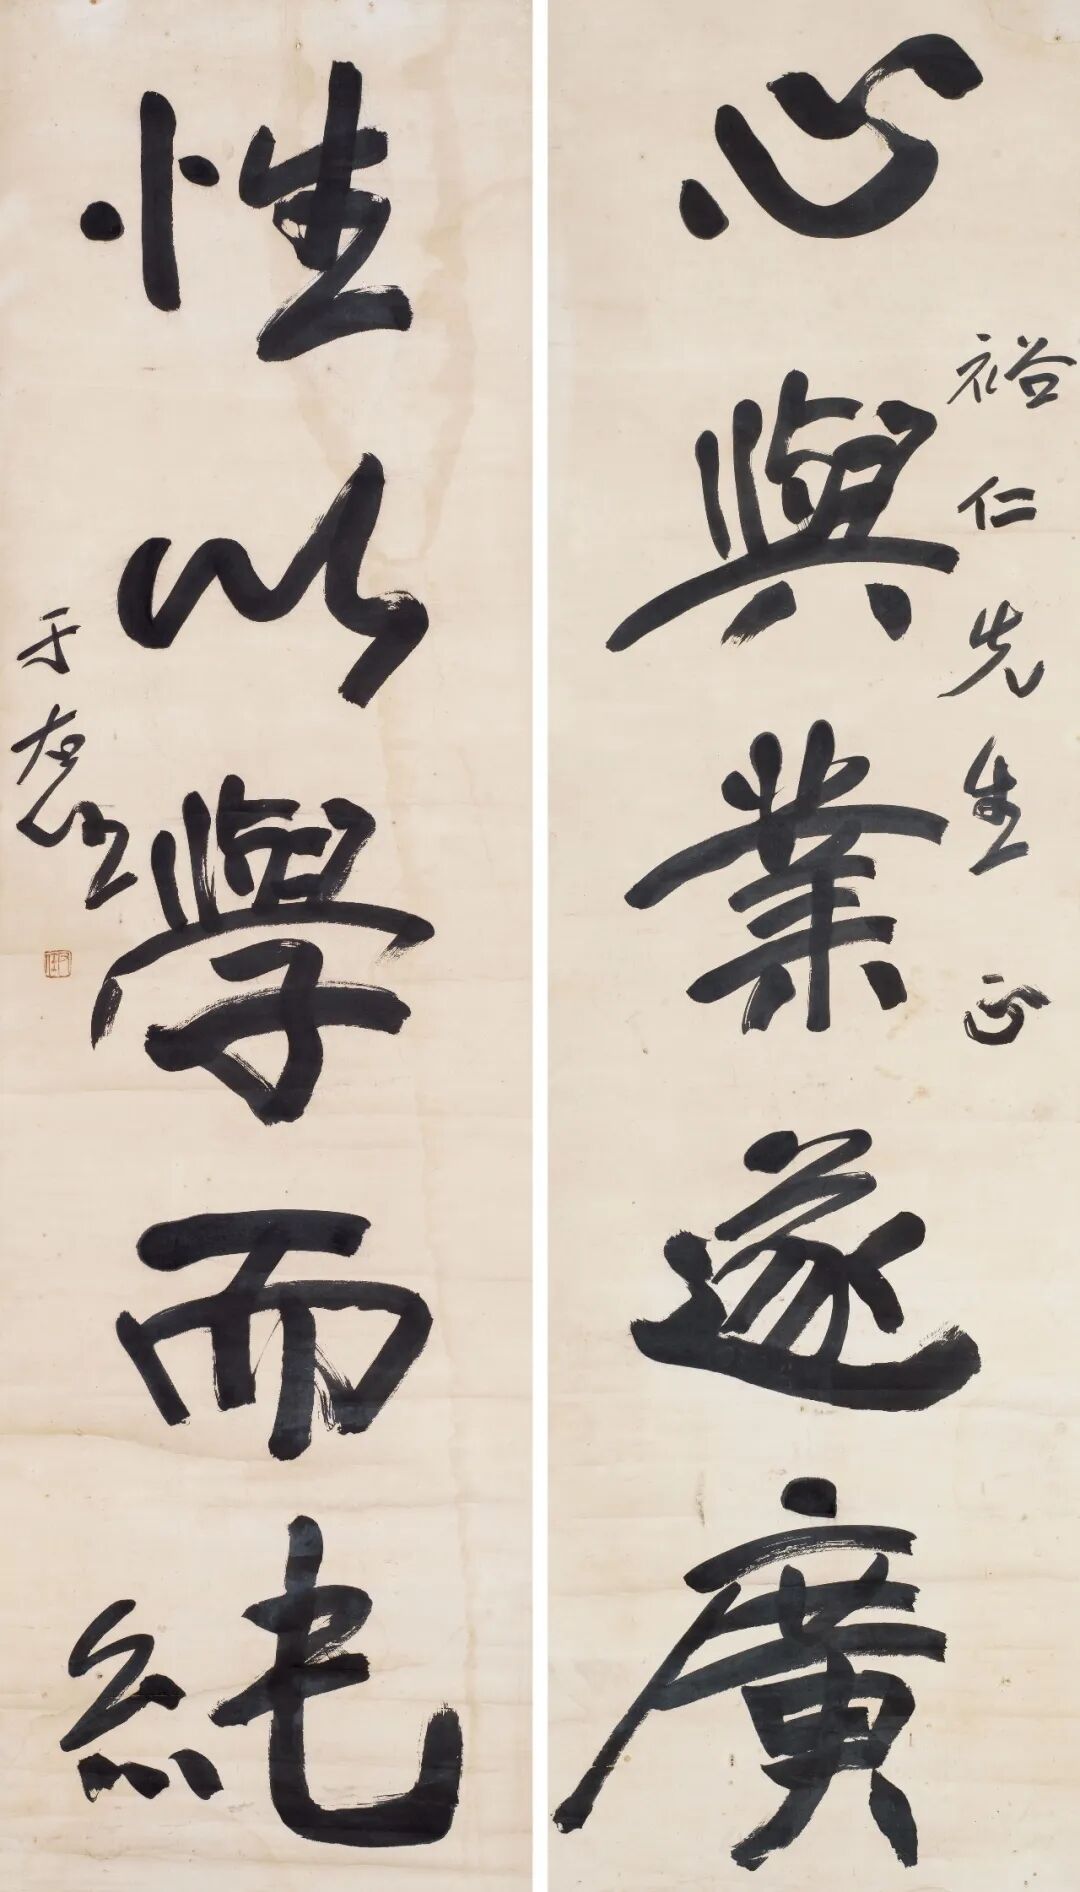 裕仁先生正
心與業遂廣
性以學而純
于右任